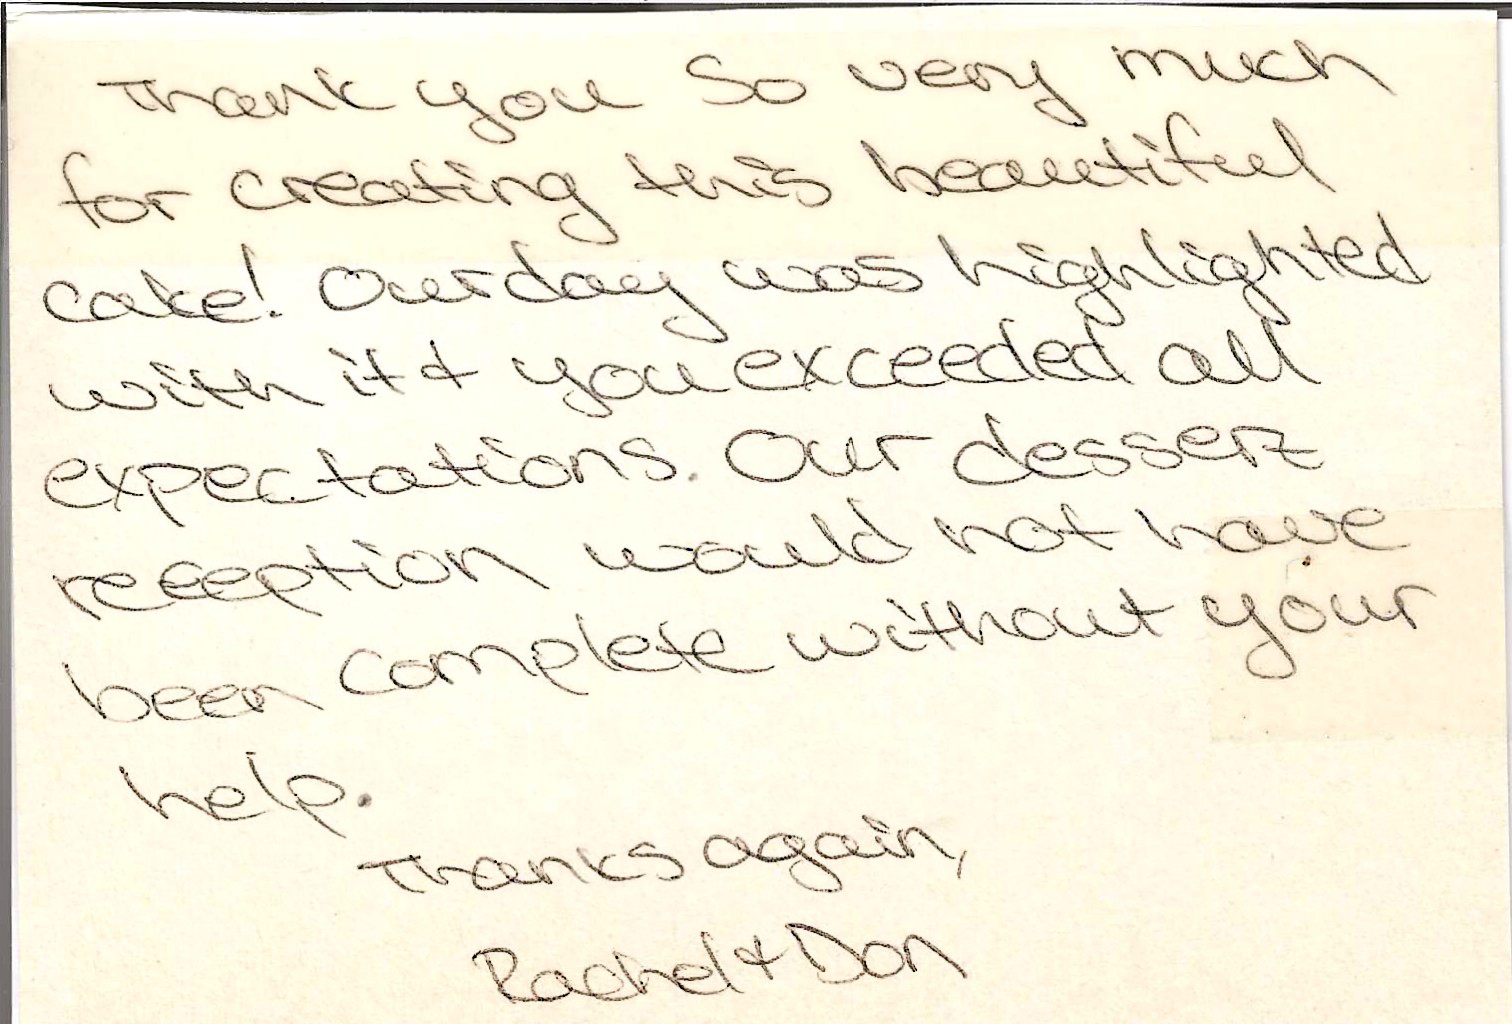 Thank you so very much
for creating this beautiful
cake! Our day was highlighted
with it & you exceeded all
expectations. Our dessert
reception would not have
been complete without your
help.
Thanks again,
Rachel & Don